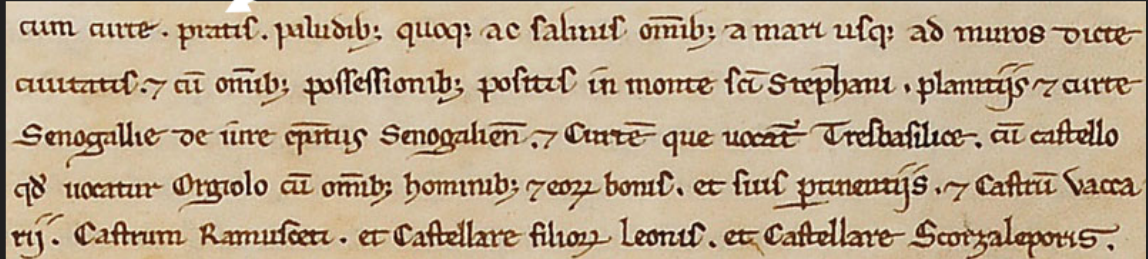 cum curte. pratis. paludib; quoq; ac salinis om̄ib; a mari usq; ad muros dicte
ciuitatis. ⁊ cū om̄ib; possessionib; positis in monte sc̄i Stephani. planitiis ⁊ curte
Senogallie de iure ep̄atus Senogalien̄. ⁊ Curtē que uocat̄ Tresbasilice. cū castello
qd̓ uocatur Orgiolo cū om̄ib; hominib; ⁊ eoꝝ bonis. et suis ꝑtinentijs. ⁊ Castrū Vacca
rij. Castrum Ramusceti. et Castellare filioꝝ Leonis. et Castellare Scorzaleporis.